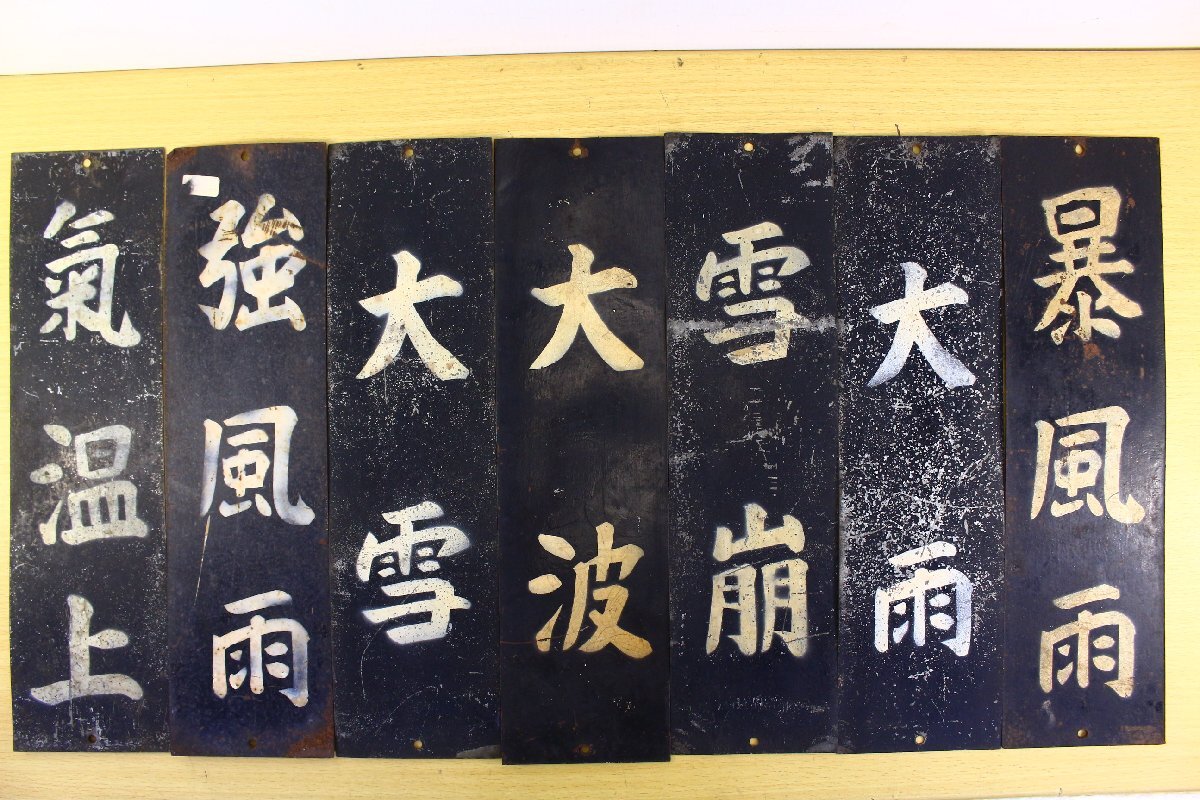 暴風雨
大雨
雪崩
大波
大雪
強風雨
氣温上